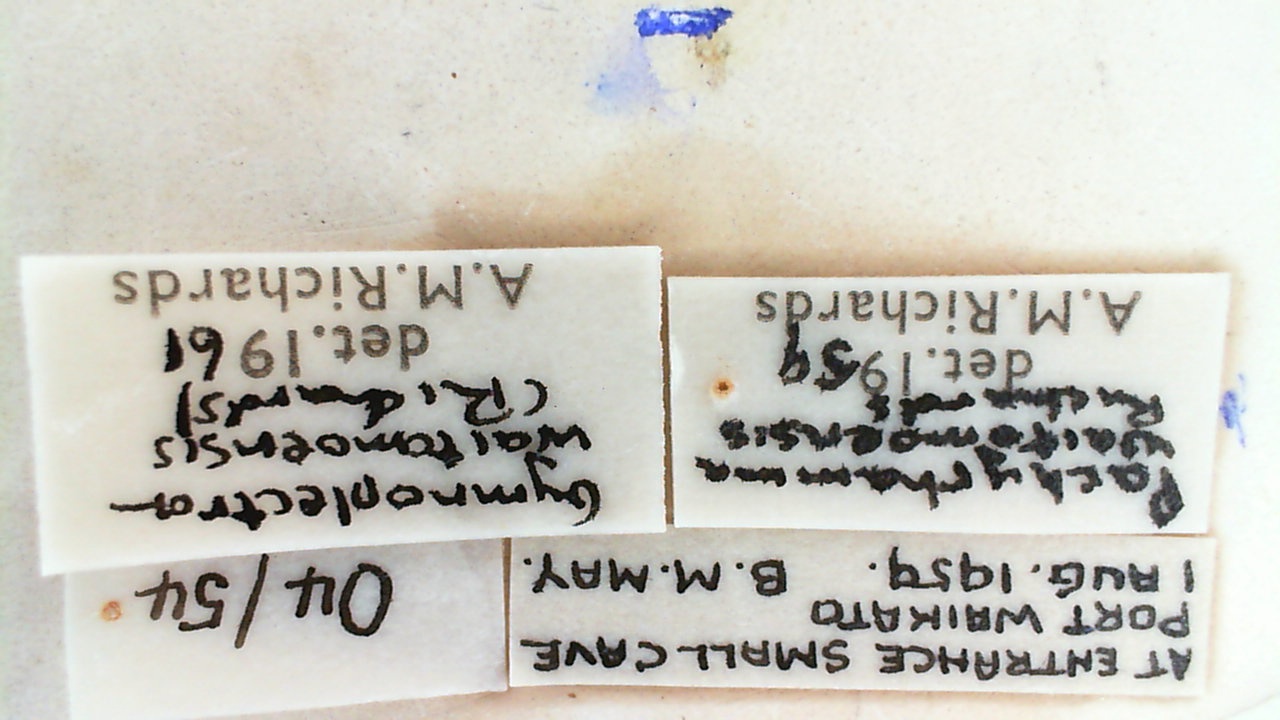 AT ENTRANCE SMALL CAVE
PORT WAIKATO
1 AUG. 1959. B. M. MAY.
04/54
Pachyrhamma
waitomoensis
Richards
det. 1959
A.M.Richards
Gymnoplectron
waitomoensis
(Richards)
det. 1961
A.M.Richards